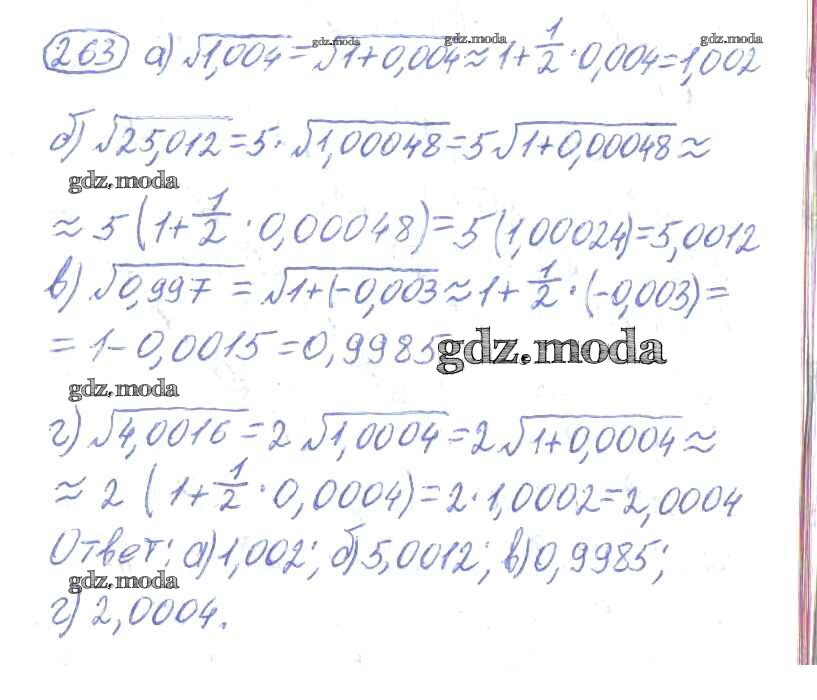 263 а) √1,004 = √1+0,004 ≈ 1+1/2·0,004=1,002
gdz.moda gdz.moda gdz.moda
б) √25,012 = 5·√1,00048 = 5√1+0,00048 ≈
gdz.moda
≈ 5(1+1/2·0,00048)=5(1,00024)=5,0012
в) √0,997 = √1+(-0,003 ≈ 1+1/2·(-0,003)=
= 1-0,0015=0,9985
gdz.moda
gdz.moda
г) √4,0016 = 2√1,0004 = 2√1+0,0004 ≈
≈ 2 (1+1/2·0,0004)=2·1,0002=2,0004
Ответ: а)1,002; б)5,0012; в)0,9985;
gdz.moda
г) 2,0004.